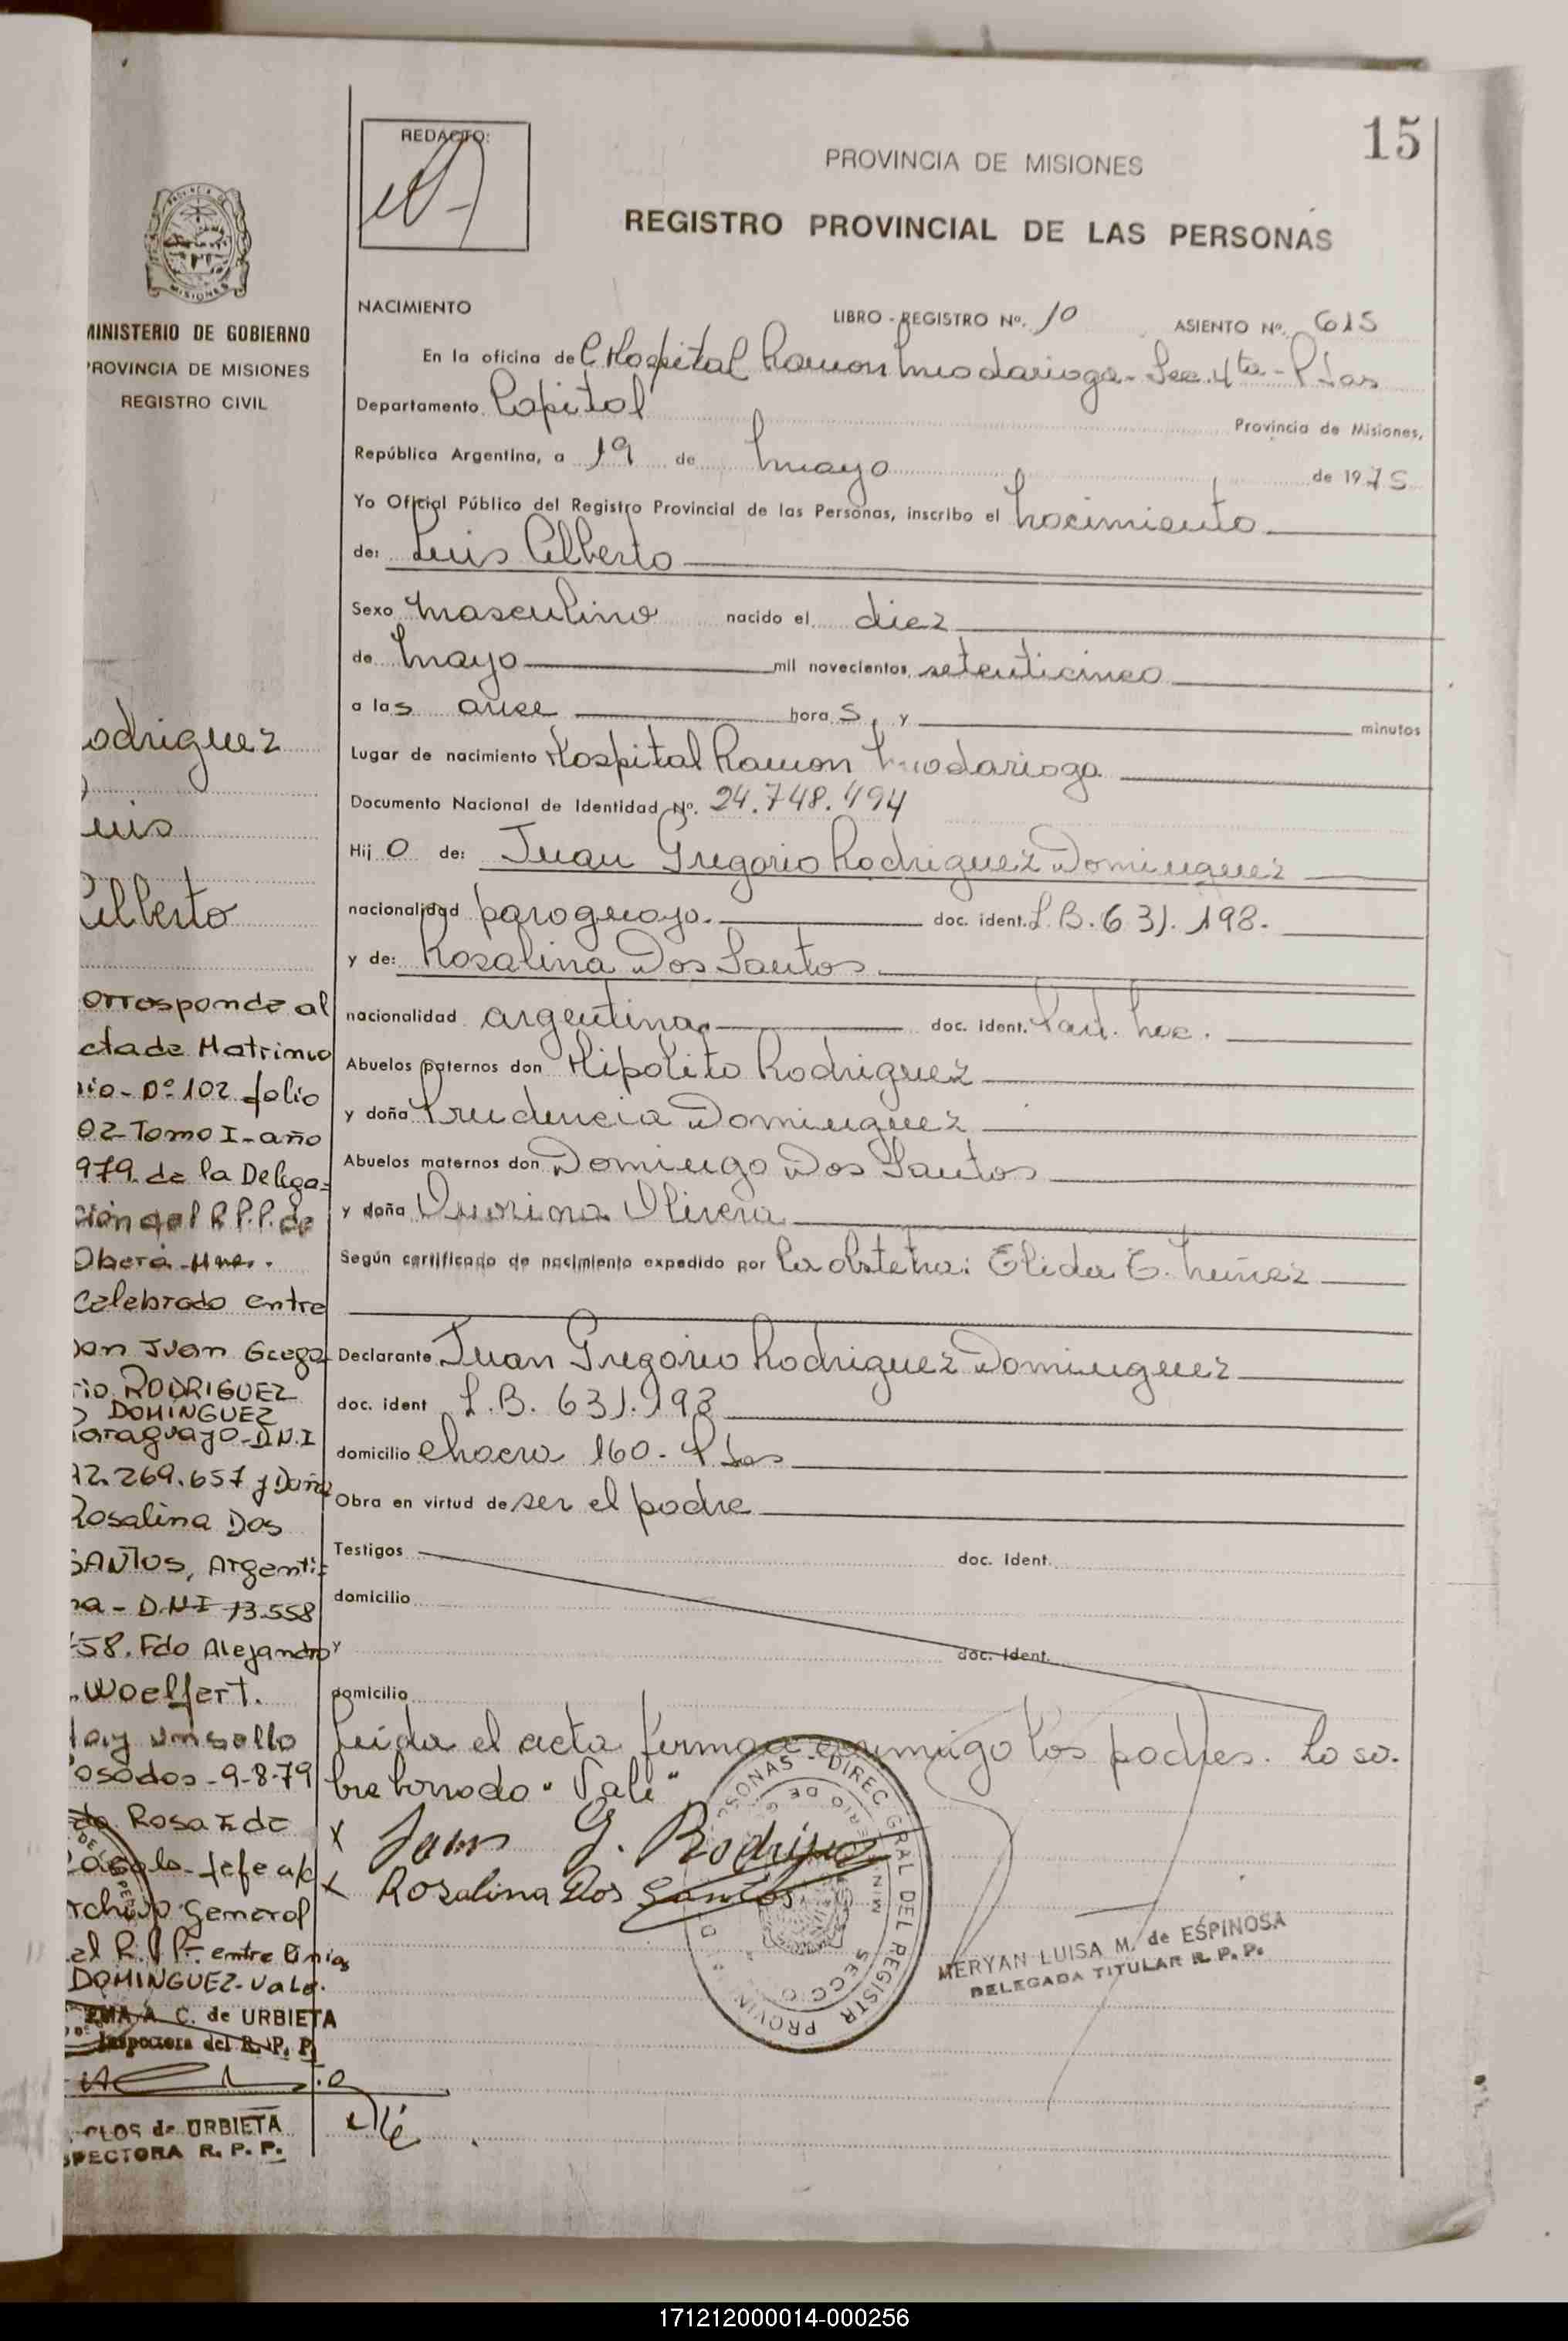 15
REDACTO:
PROVINCIA DE MISIONES
REGISTRO PROVINCIAL DE LAS PERSONAS
MISIONES
MINISTERIO DE GOBIERNO
PROVINCIA DE MISIONES
REGISTRO CIVIL
odriguez
uis
Alberto
orresponde al
cta de Matrimo
nio - Nº 102 folio
02 Tomo I - año
979. de la Delega=
ción del R.P.P. de
Oberá - Mnes.
Celebrado entre
Don Juan Grego
rio RODRIGUEZ
DOMINGUEZ
Paraguayo - D.N.I
92.269.657 y Doña
Rosalina Dos
SANTOS, Argenti=
na - D.N.I 13.558
58. Fdo Alejandro
Woelfert.
Hay un sello
Posadas - 9-8-79
Rosa F. de
Jefe a/c
Archivo General
del R.P.P. entre lineas
DOMINGUEZ - Vale.
EMA A. C. de URBIETA
Inspectora del R. P. P.
CLOS de URBIETA
SPECTORA R. P. P.
NACIMIENTO LIBRO - REGISTRO Nº. 10 ASIENTO Nº. 615
En la oficina del Hospital Ramon Madariaga - Sec. 4ta - Pdas
Departamento Capital Provincia de Misiones,
República Argentina, a 19 de mayo de 1975
Yo Oficial Público del Registro Provincial de las Personas, inscribo el nacimiento
de: Luis Alberto
Sexo masculino nacido el diez
de mayo mil novecientos setenticinco
a las once horas, y minutos
Lugar de nacimiento Hospital Ramon Madariaga
Documento Nacional de Identidad Nº. 24.748.494
Hijo de: Juan Gregorio Rodriguez Dominguez
nacionalidad paraguayo. doc. ident. L.B. 631.198.
y de: Rosalina Dos Santos
nacionalidad argentina doc. ident.
Abuelos paternos don Hipolito Rodriguez
y doña Prudencia Dominguez
Abuelos maternos don Domingo Dos Santos
y doña Olivera
Según certificado de nacimiento expedido por la obstetra: Elida E. Nuñez
Declarante Juan Gregorio Rodriguez Dominguez
doc. ident L.B. 631.198
domicilio chacra 160 - Pdas
Obra en virtud de ser el padre
Testigos doc. Ident.
domicilio
y doc. Ident.
domicilio
Leida el acta firman conmigo los padres. Lo so.
bre borrado "Vale"
x Juan G. Rodrigue
x Rosalina Dos Santos
DIREC. GRAL DEL REGISTR PROVIN
MERYAN LUISA M. de ESPINOSA
DELEGADA TITULAR R. P. P.
171212000014-000256